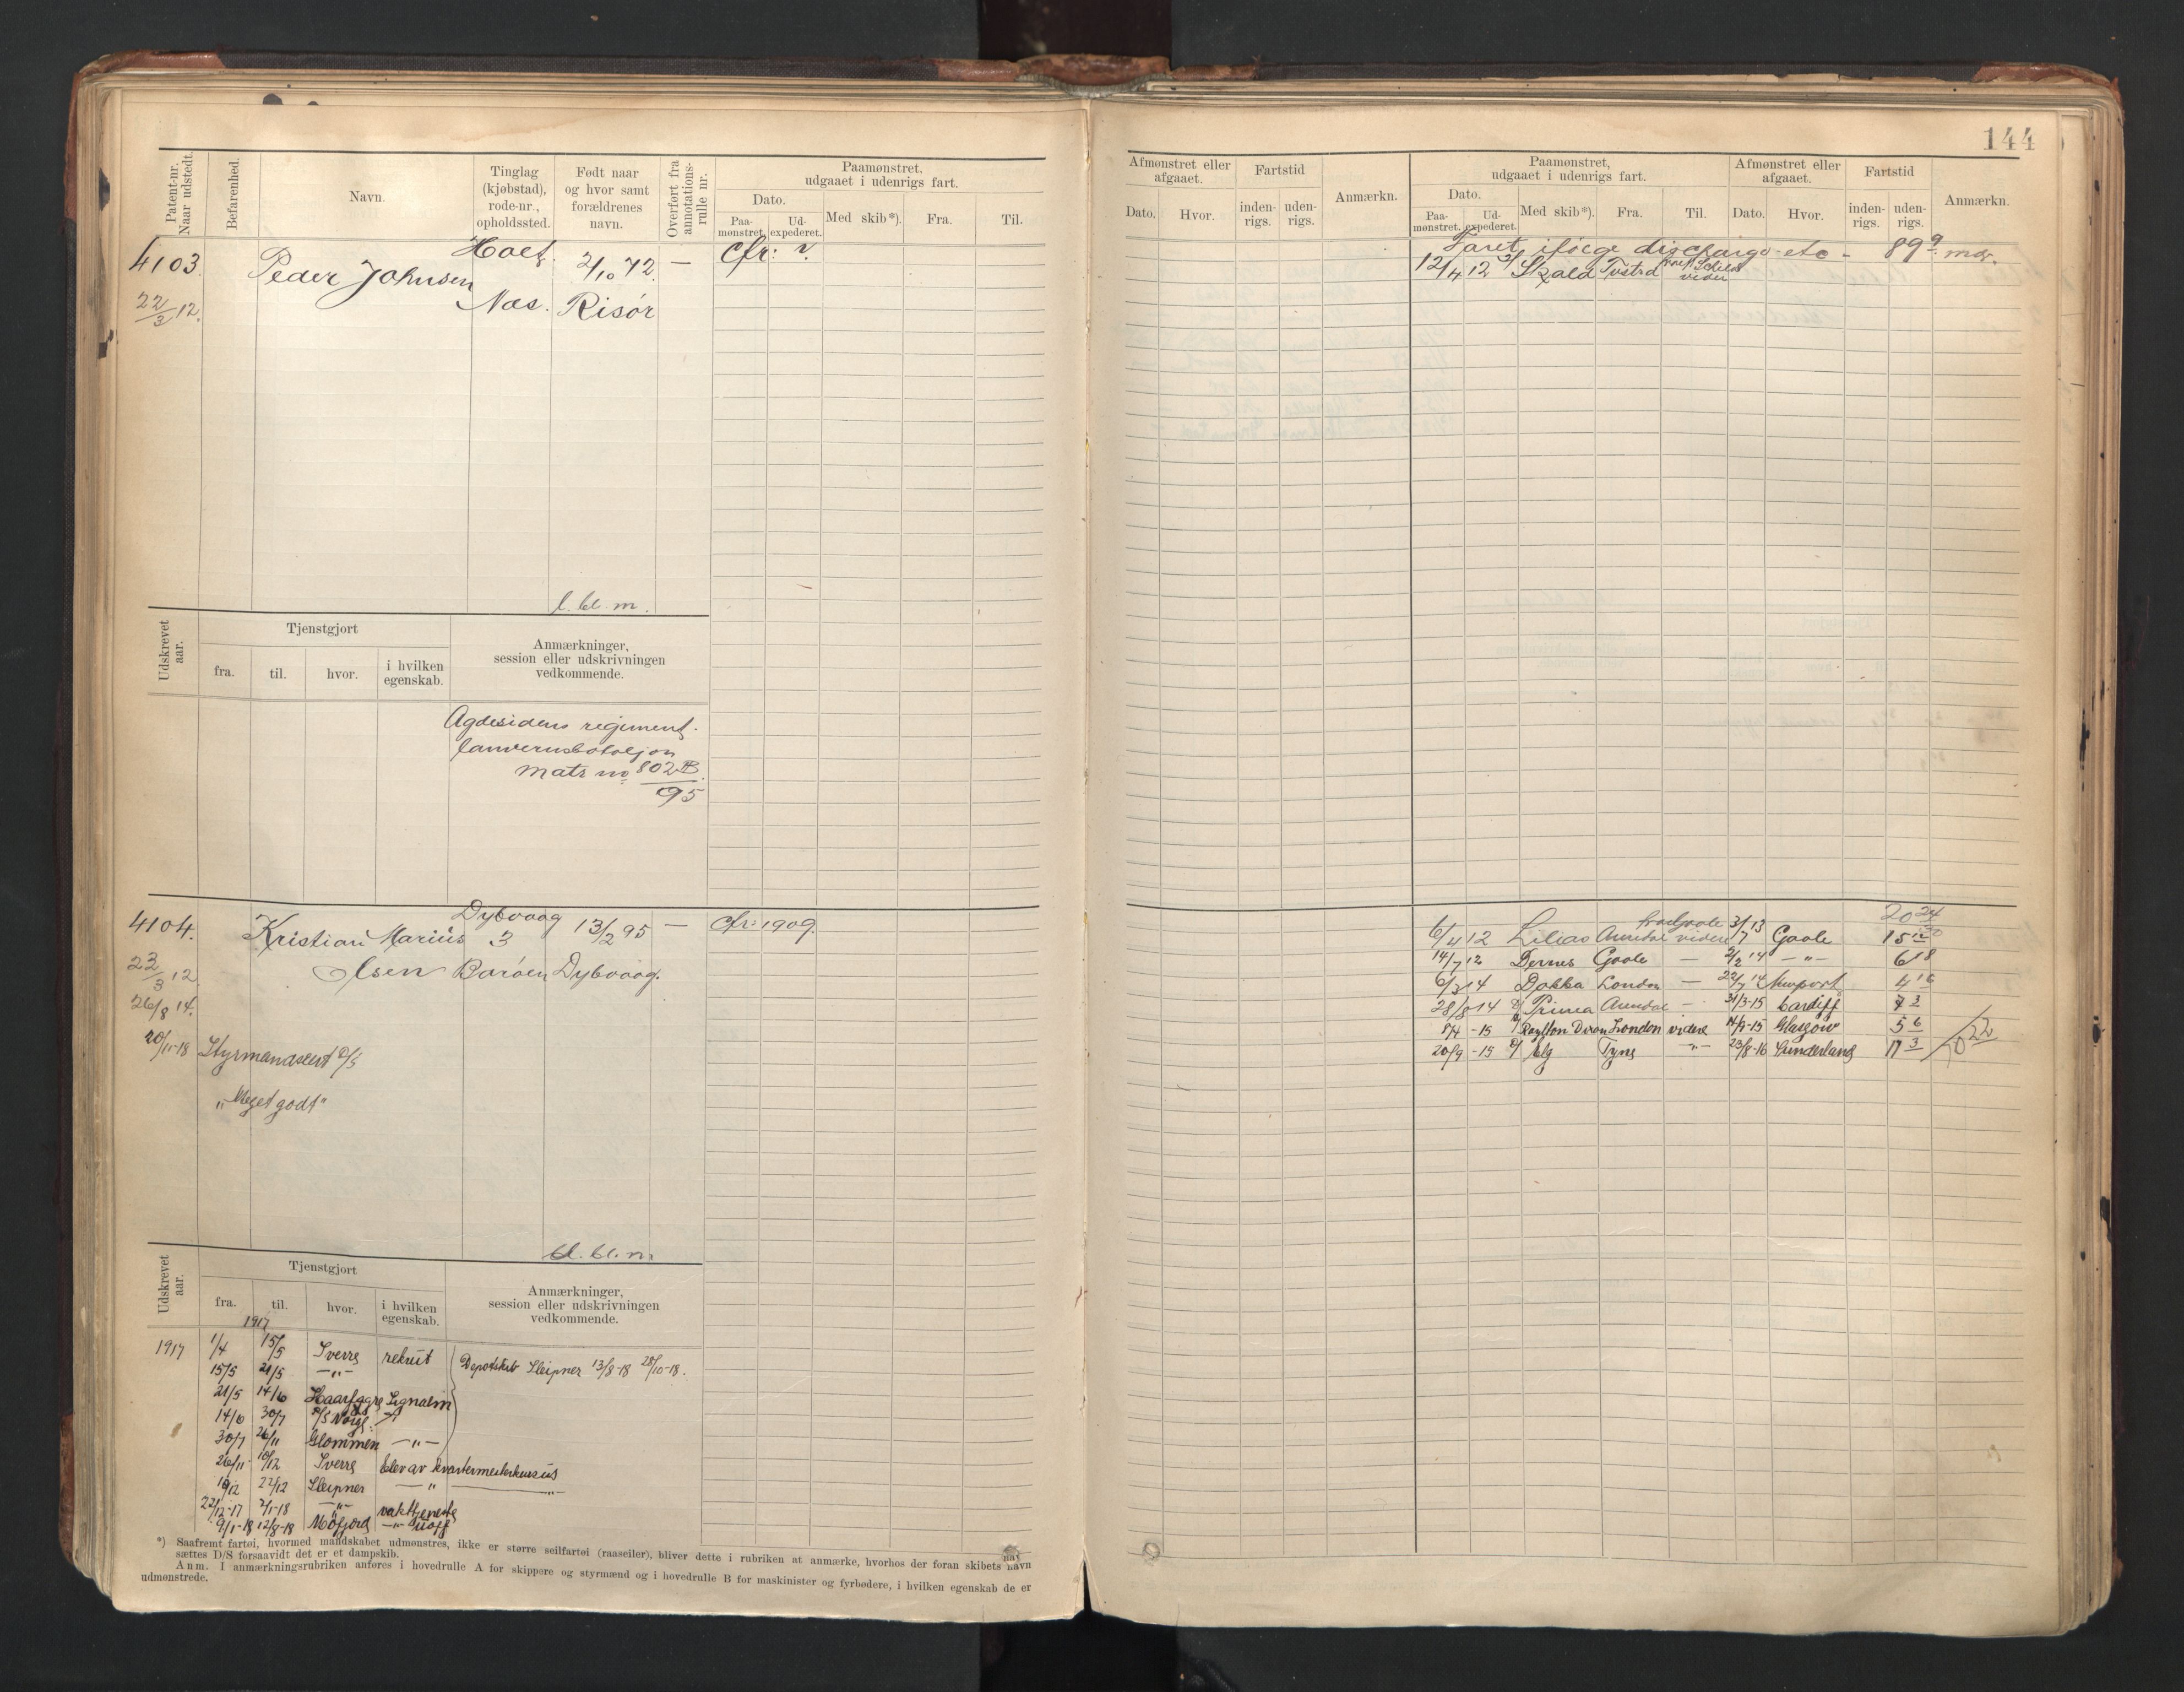 144
Patent-nr. Naar udstedt.
Befarenhed.
Navn.
Tinglag (kjøbstad), rode-nr., opholdssted.
Født naar og hvor samt forældrenes navn.
Overført fra annotations-rulle nr.
Paamønstret, udgaaet i udenrigs fart.
Dato.
Paa-mønstret.
Ud-expederet.
Med skib*).
Fra.
Til.
Afmønstret eller afgaaet.
Dato.
Hvor.
Fartstid
inden-rigs.
uden-rigs.
Anmærkn.
Paamønstret, udgaaet i udenrigs fart.
Dato.
Paa-mønstret.
Ud-expederet.
Med skib*).
Fra.
Til.
Afmønstret eller afgaaet.
Dato.
Hvor.
Fartstid
inden-rigs.
uden-rigs.
Anmærkn.
4103. Peder Johnsen Holt. 2/10 72. — cfr: v.
22/3 12. Næs. Risør
Faret ifølge discharge etc - 89 9 mdr.
12/4 12 Skald Tvestrd videre
l. bl. m.
Udskrevet aar.
Tjenstgjort
fra. til. hvor. i hvilken egenskab.
Anmærkninger, session eller udskrivningen vedkommende.
Agdesidens regiment.
lanvernsbataljon
Matr no 802 B.
95
4104. Kristian Marius Dybvaag 3 13/2 95 — cfr: 1909.
23/3 12 Olsen Barøen Dybvaag.
26/8 14.
20/11-18 Styrmandscert
"Meget godt"
20 24
6/4 12 Lilias Arendal videre 3/7 13 Goole 15
14/7 12 Dernes Goole — 2/2 14 —"— 6 18
6/3 14 Dokka London — 22/7 14 Newport 4 16
28/8 14 Prima Arendal - 31/3-15 Cardiff 7 3
8/4 -15 Raylton Dixon London videre 14/9-15 Glasgow 5 6
20/9 -15 Elg Tyne "- 23/8-16 Sunderland 11 3
bl. bl. m.
Udskrevet aar.
Tjenstgjort
fra. til. hvor. i hvilken egenskab.
Anmærkninger, session eller udskrivningen vedkommende.
1917
1917 1/4 15/5 Sverre rekrut
Depotskib Sleipner 13/8-18 28/10-18.
15/5 21/5 —"—
21/5 14/6 Haarfagre Signalm
14/6 30/7 Norge
30/7 26/11 Glommen —"—
26/11 10/12 Sverre elev av kvartermesterkursus
10/12 22/12 Sleipner —"—
22/12-17 2/1-18 —"— vakttjeneste
9/1-18 12/8-18 Mofjord —"—
*) Saafremt fartøi, hvormed mandskabet udmønstres, ikke er større seilfartøi (raaseiler), bliver dette i rubriken at anmærke, hvorhos der foran skibets navn
sættes D/S forsaavidt det er et dampskib.
Anm. I anmærkningsrubriken anføres i hovedrulle A for skippere og styrmænd og i hovedrulle B for maskinister og fyrbødere, i hvilken egenskab de er
udmønstrede.